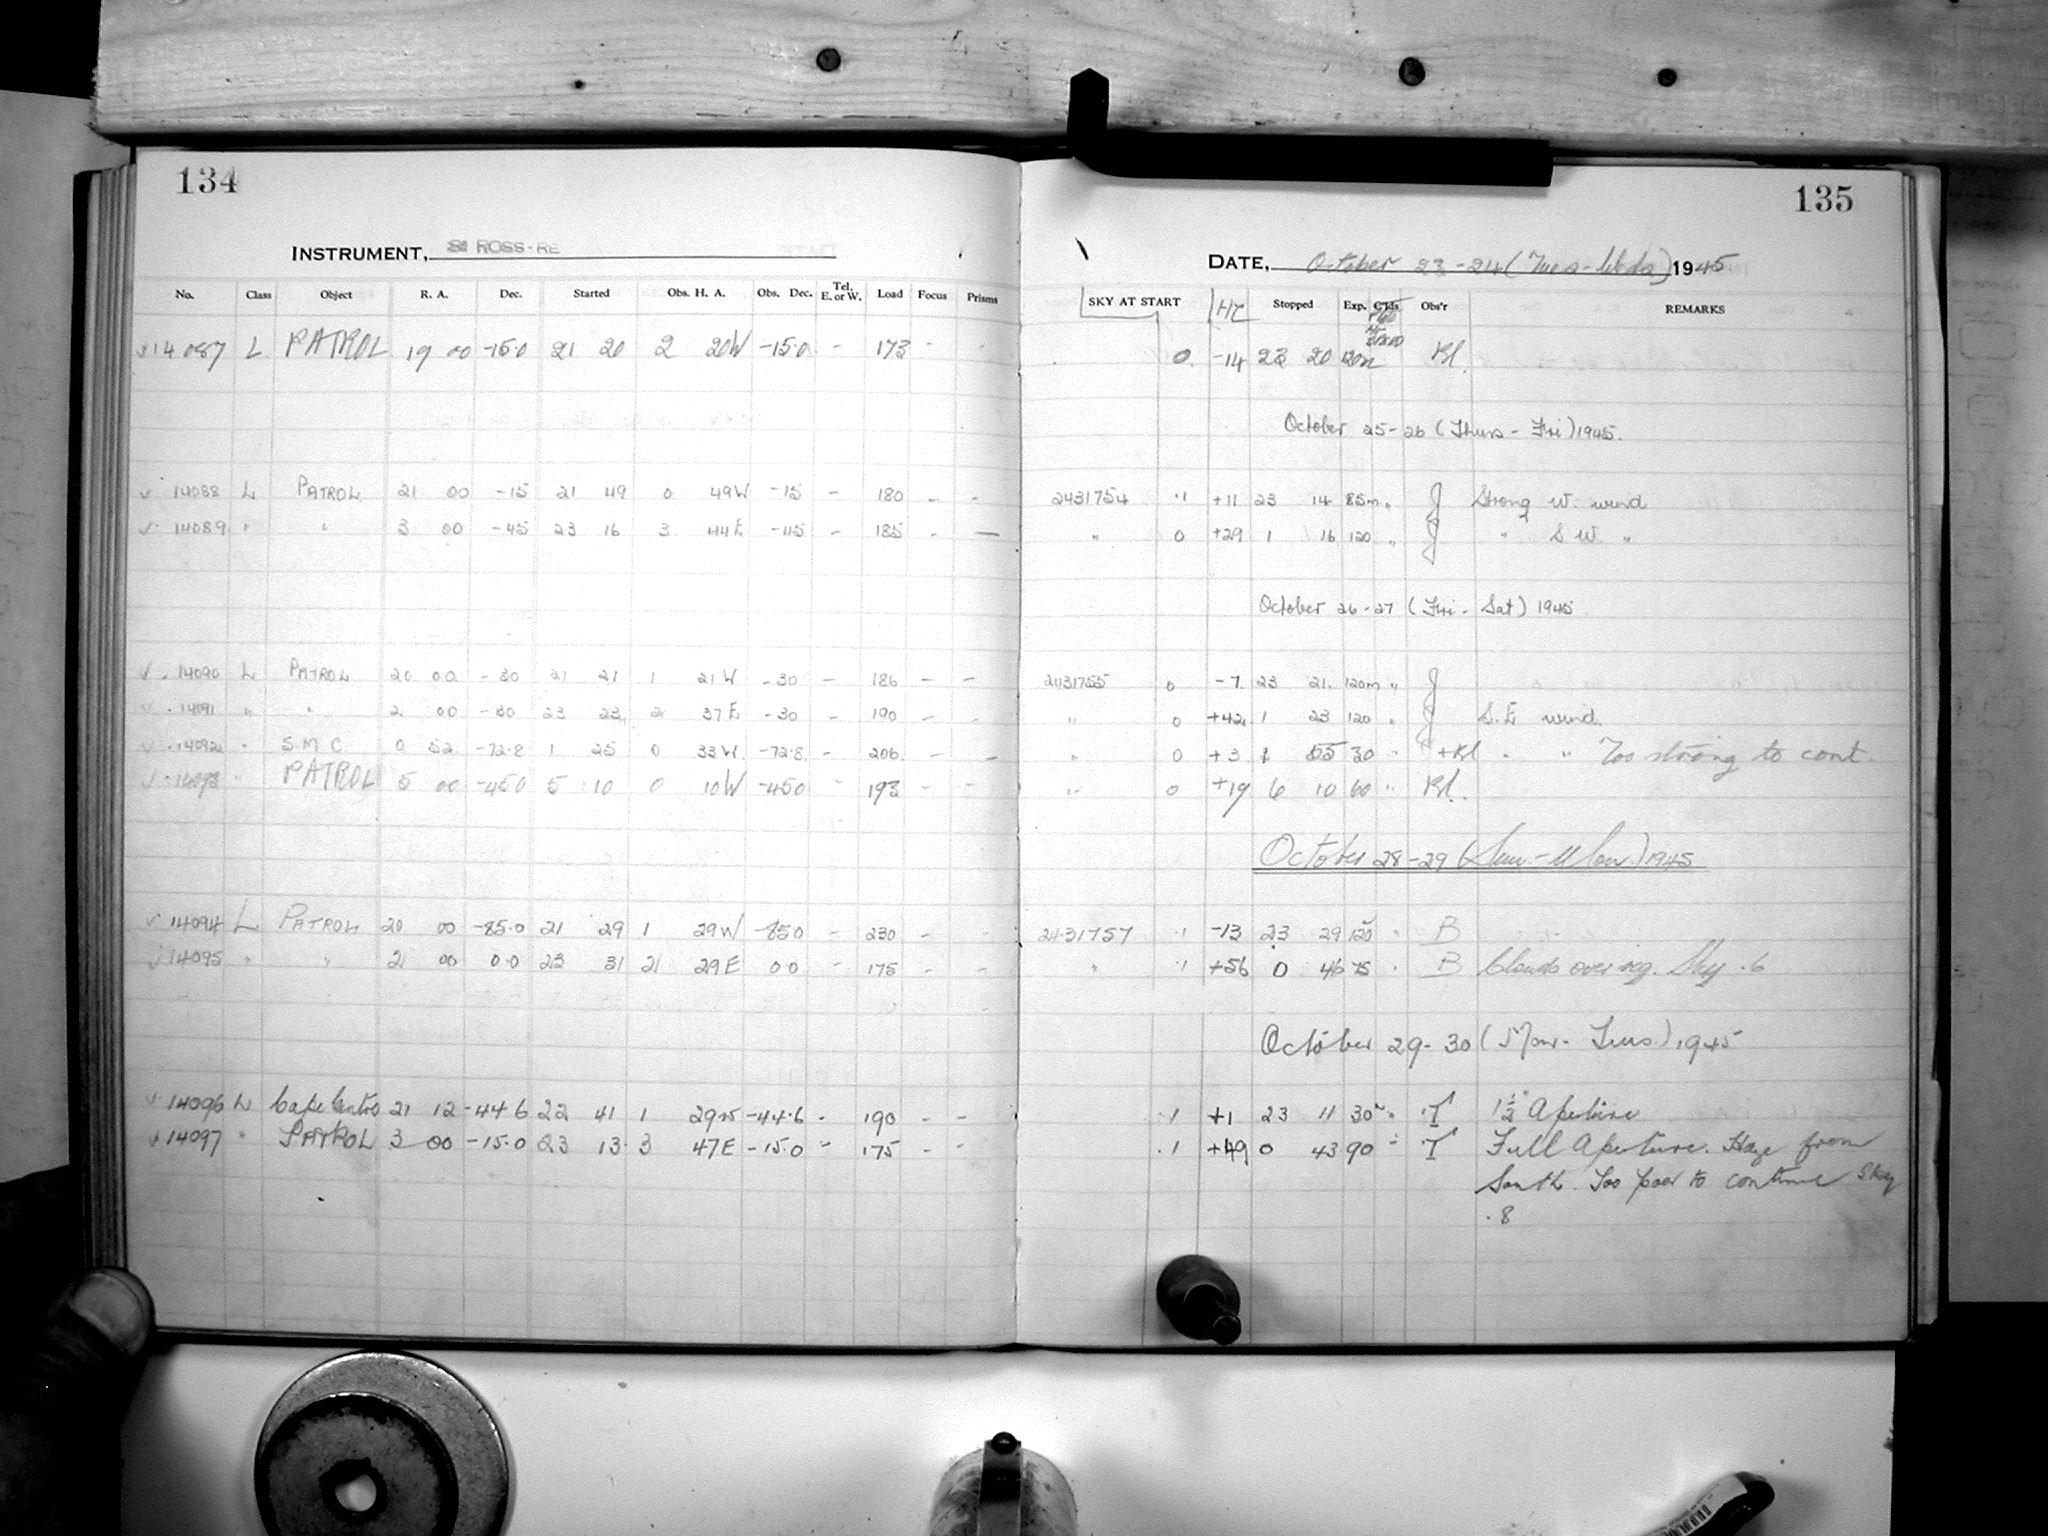 134
INSTRUMENT, SI ROSS-RE
No. Class Object R. A. Dec. Started Obs. H. A. Obs. Dec. Tel. E. or W. Load Focus Prisms
√14087 L PATROL 19 00 -15.0 21 20 2 20W -15.0 - 173 - -
√ 14088 L PATROL 21 00 -15 21 49 0 49W -15 - 180 - -
√ 14089 " " 3 00 -45 23 16 3 44E -45 - 185 - -
√ 14090 L PATROL 20 00 -30 21 21 1 21W -30 - 186 - -
√ 14091 " " 2 00 -30 23 23 2 37E -30 - 190 - -
√ 14092 " S.M.C. 0 52 -72.8 1 25 0 33W -72.8 - 206 - -
√ 14093 " PATROL 5 00 -45.0 5 10 0 10W -45.0 - 193 - -
√ 14094 L PATROL 20 00 -85.0 21 29 1 29W -85.0 230 - -
√ 14095 " " 2 00 0.0 23 31 2 29E 0.0 - 175 - -
√ 14096 L Cape Centro 21 12 -44.6 22 41 1 29W -44.6 - 190 - -
√ 14097 " PATROL 3 00 -15.0 23 13 3 47E -15.0 - 175 - -
135
DATE, October 23-24 (Tues-Weds) 1945
SKY AT START HT Stopped Exp. Obs'r REMARKS
0 -14 23 20 120m Kl.
October 25-26 (Thurs - Fri) 1945.
2431754 .1 +11 23 14 85m " J Strong W. wind
" 0 +29 1 16 120 " J " S.W. "
October 26-27 (Fri - Sat) 1945
2431755 0 -7 23 21 120m " J
" 0 +42 1 23 120 " J S.E. wind.
" 0 +3 1 55 30 " +Kl " " Too strong to cont.
" 0 +19 6 10 60 " Kl.
October 28-29 (Sun.-Mon.) 1945
2431757 .1 -13 23 29 120 " B
" .1 +56 0 46 75 " B Clouds over reg. Sky .6
October 29-30 (Mon- Tues.) 1945
.1 +1 23 11 30m " T 1½" Aperture
.1 +49 0 43 90 " T Full Aperture. Haze from
South. Too poor to continue Sky
.8